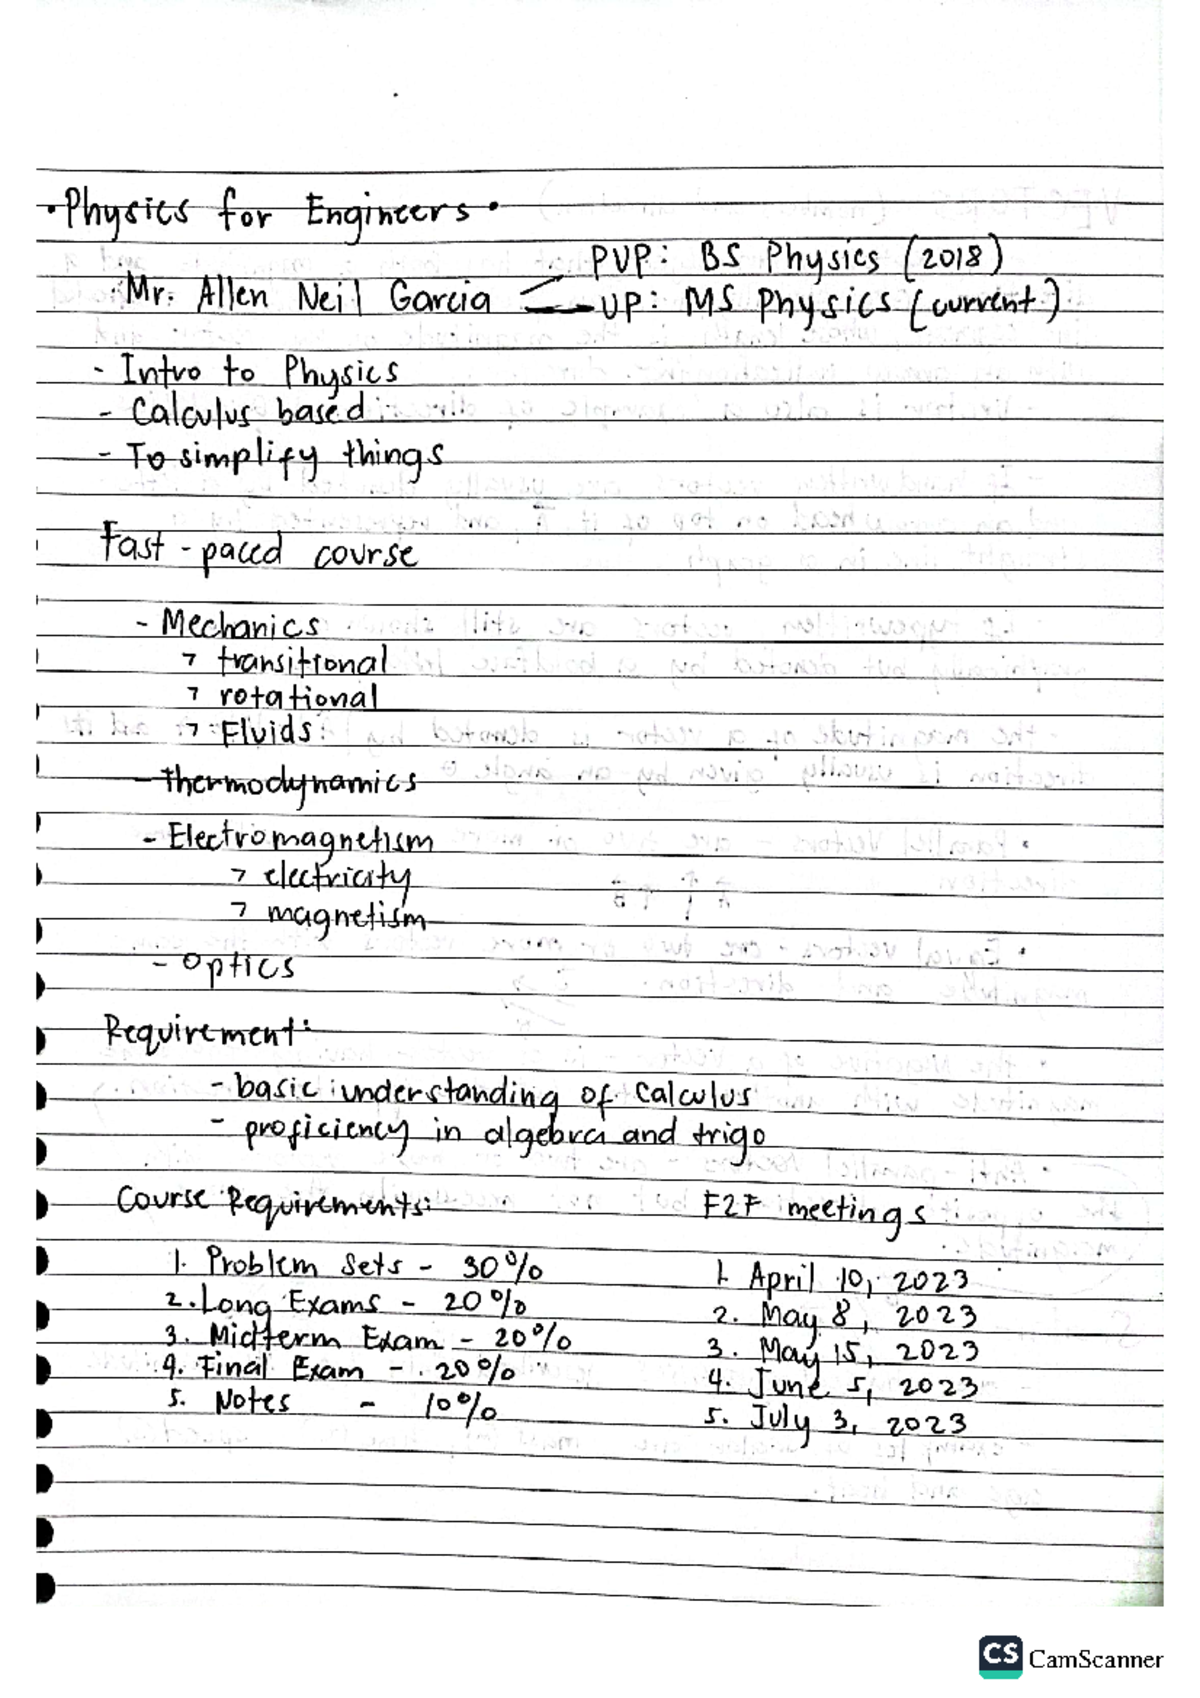 • Physics for Engineers •
PVP: BS Physics (2018)
Mr. Allen Neil Garcia
UP: MS Physics (current)
- Intro to Physics
- Calculus based
- To simplify things
Fast-paced course
- Mechanics
> transitional
> rotational
> Fluids
- Thermodynamics
- Electromagnetism
> electricity
> magnetism
- Optics
Requirement:
- basic understanding of Calculus
- proficiency in algebra and trigo
Course Requirements: F2F meetings
1. Problem Sets - 30% 1. April 10, 2023
2. Long Exams - 20% 2. May 8, 2023
3. Midterm Exam - 20% 3. May 15, 2023
4. Final Exam - 20% 4. June 5, 2023
5. Notes - 10% 5. July 3, 2023
CS CamScanner